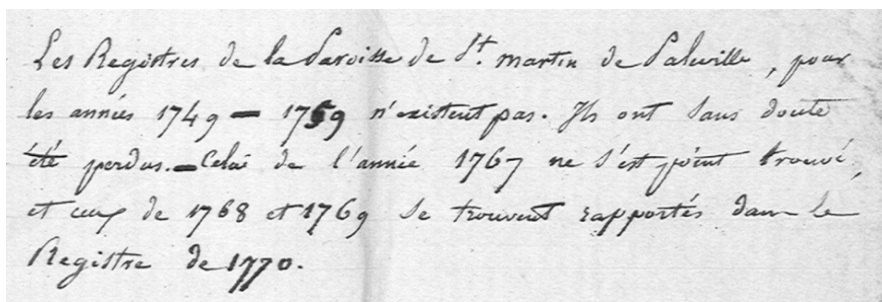 Les Registres de la Paroisse de St. martin de Paleville, pour
les années 1749 - 1759 n'existent pas. Ils ont sans doute
été perdus. - Celui de l'année 1767 ne s'est point trouvé,
et ceux de 1768 et 1769 se trouvent rapportés dans le
Registre de 1770.